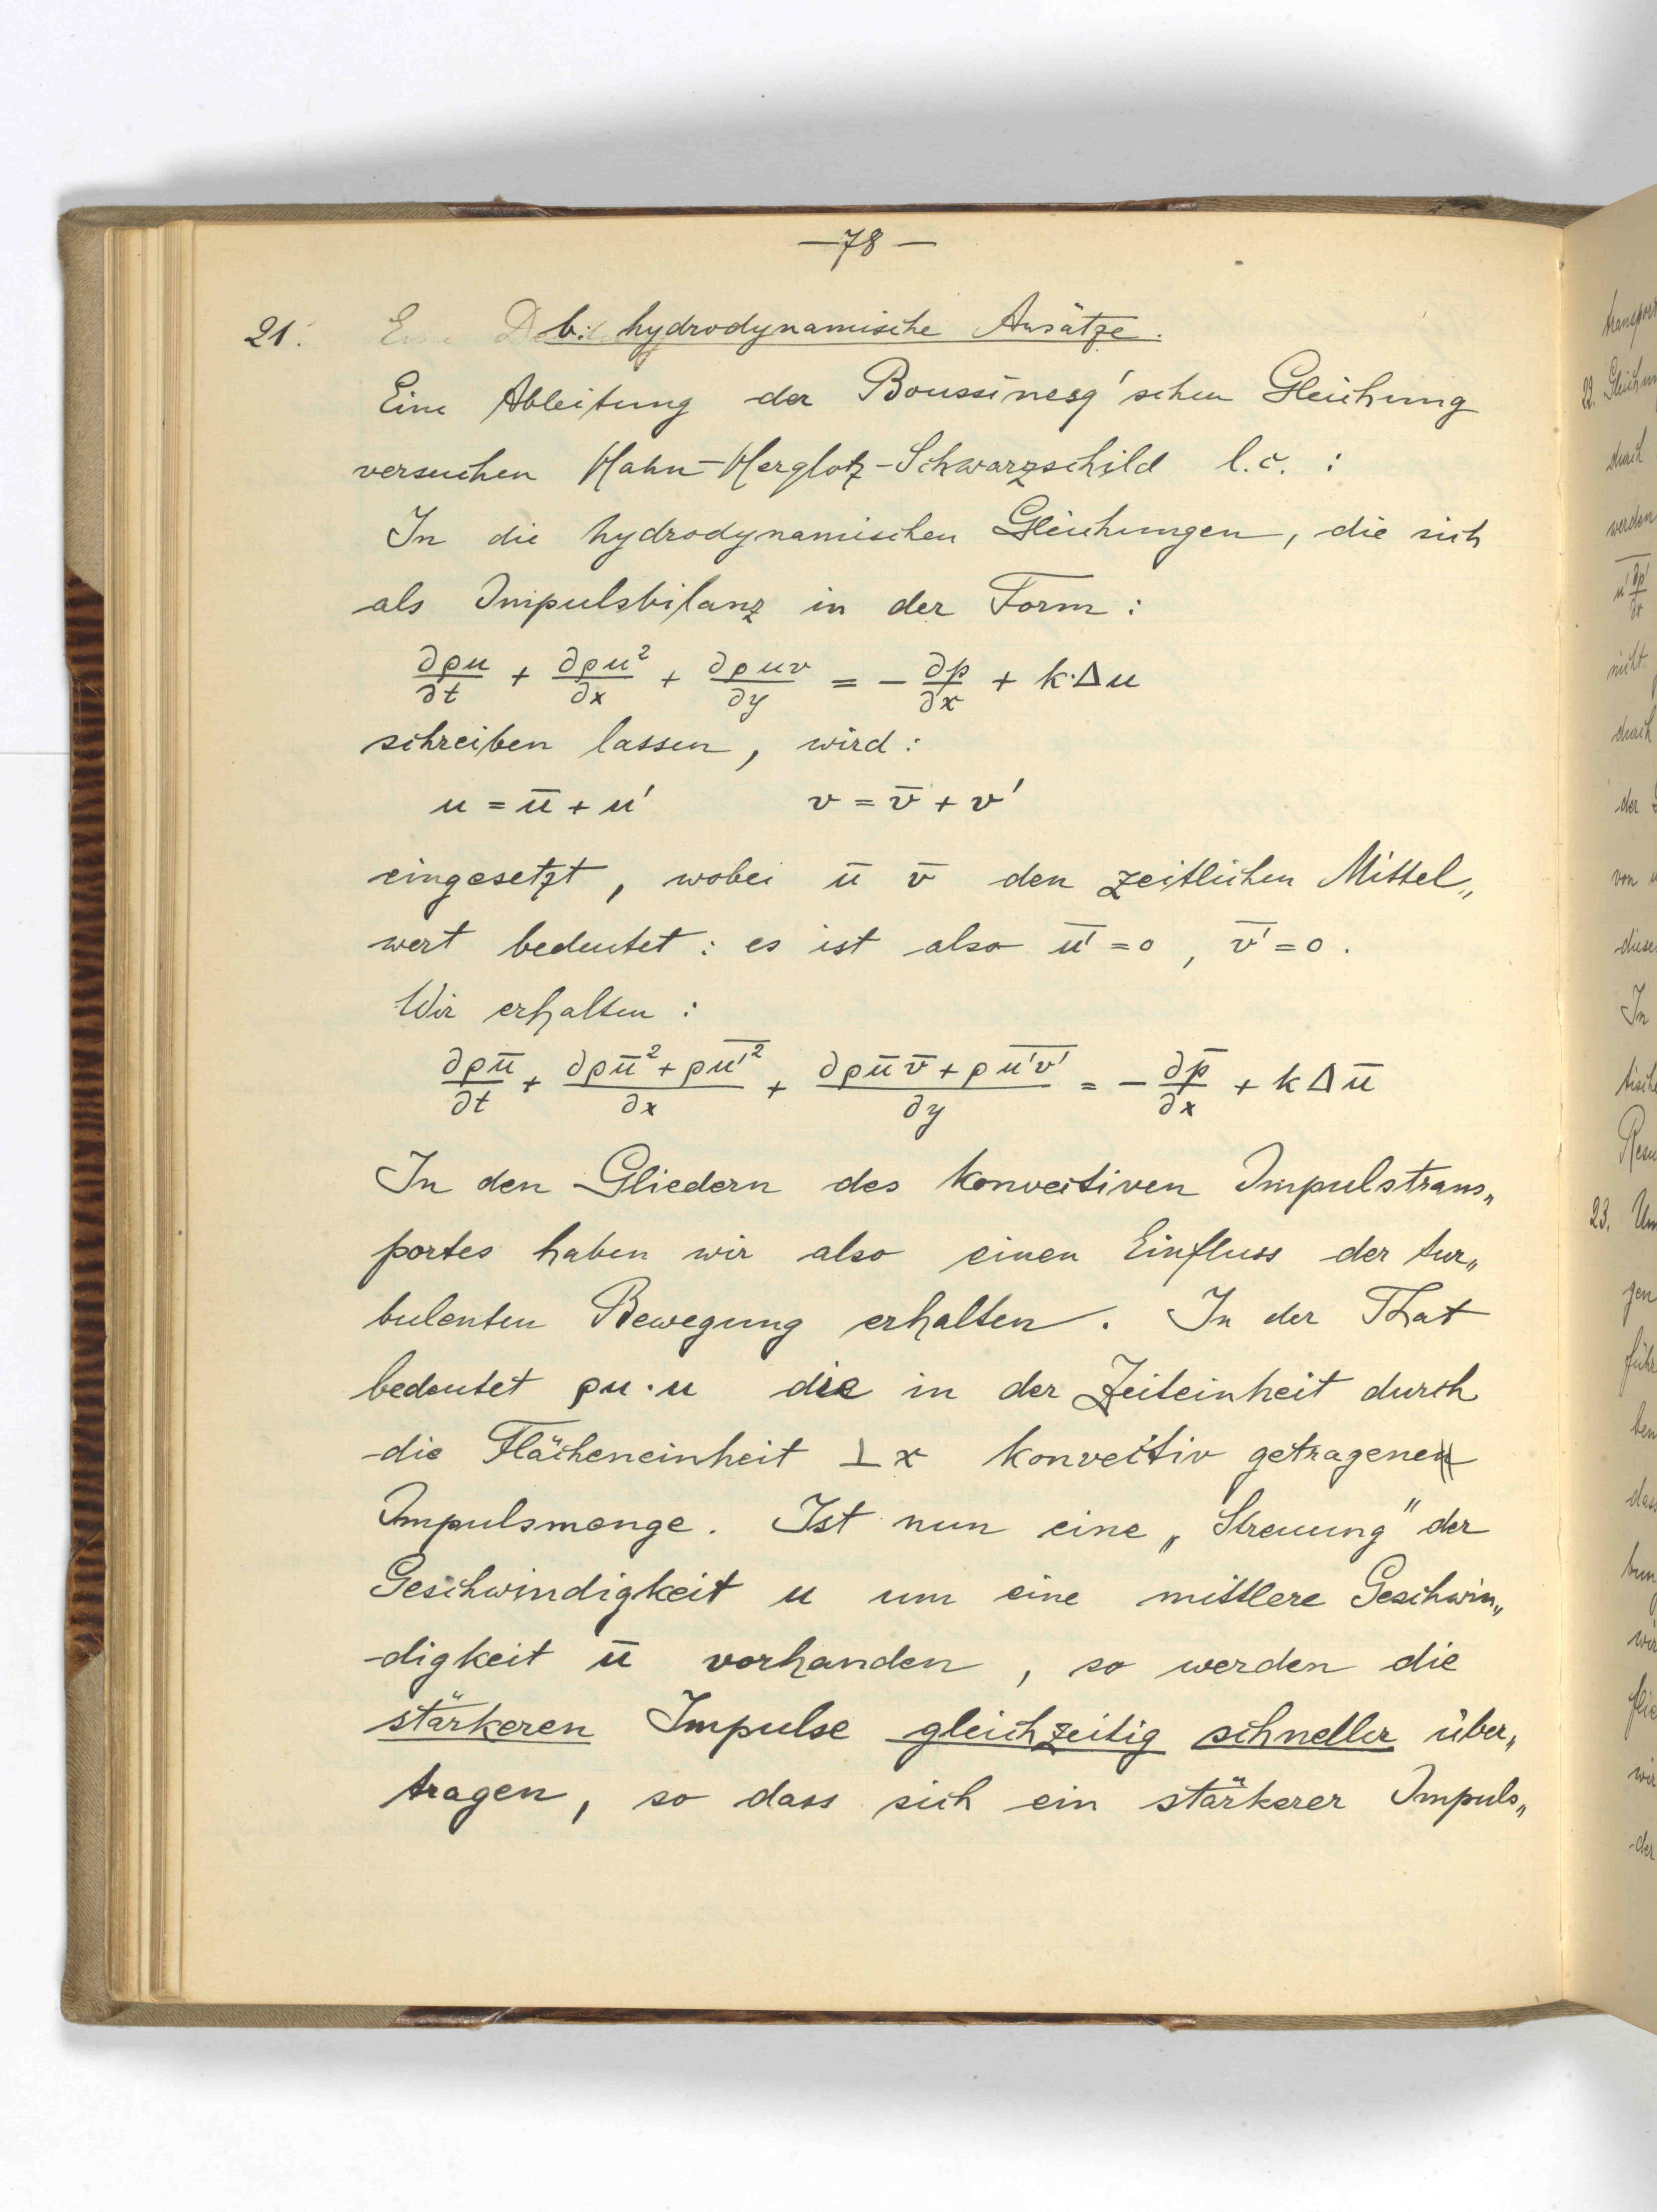 —78—
21. b: hydrodynamische Ansätze.
Eine Ableitung der Boussinesq'schen Gleichung
versuchen Hahn-Herglotz-Schwarzschild l.c. :
In die hydrodynamischen Gleichungen, die sich
als Impulsbilanz in der Form :
∂ρu/∂t + ∂ρu²/∂x + ∂ρuv/∂y = - ∂p/∂x + k·Δu
schreiben lassen, wird :
u = ū + u' v = v̄ + v'
eingesetzt, wobei ū v̄ den zeitlichen Mittel„
wert bedeutet : es ist also u̅'̅ = 0 , v̅'̅ = 0 .
Wir erhalten :
∂ρū/∂t + ∂ρū² + ρu̅'̅²̅/∂x + ∂ρūv̄ + ρu̅'̅v̅'̅/∂y = - ∂p̄/∂x + k Δ ū
In den Gliedern des konvectiven Impulstrans„
portes haben wir also einen Einfluss der tur„
bulenten Bewegung erhalten. In der That
bedeutet ρu·u die in der Zeiteinheit durch
die Flächeneinheit ⊥ x konvectiv getragene
Impulsmenge. Ist nun eine „Streuung" der
Geschwindigkeit u um eine mittlere Geschwin„
digkeit ū vorhanden, so werden die
stärkeren Impulse gleichzeitig schneller über„
tragen, so dass sich ein stärkerer Impuls„
transport
22. 
durch
werden
nicht
durch
der
von
In
23.
gen
ben
wir
wir
der